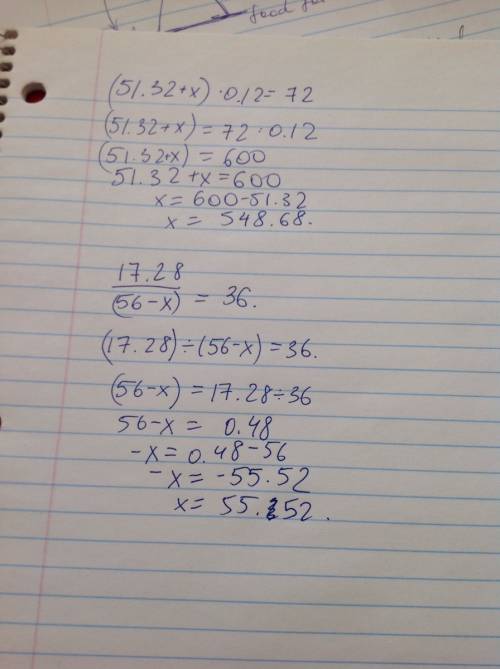 food for
(51.32+x) · 0.12 = 72
(51.32+x) = 72 · 0.12
(51.32+x) = 600
51.32 + x = 600
x = 600 - 51.32
x = 548.68.
17.28
(56 - x) = 36.
(17.28) ÷ (56 - x) = 36.
(56 - x) = 17.28 ÷ 36
56 - x = 0.48
- x = 0.48 - 56
- x = - 55.52
x = 55.52.